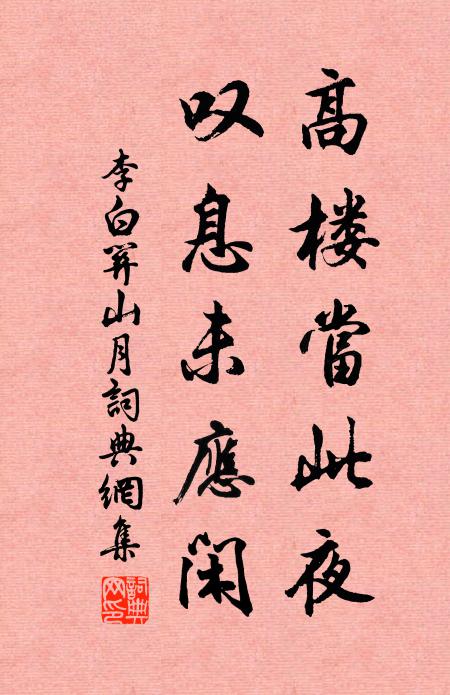 高楼當此夜
叹息未應閑
李白関山月詞典網集
詞典網印